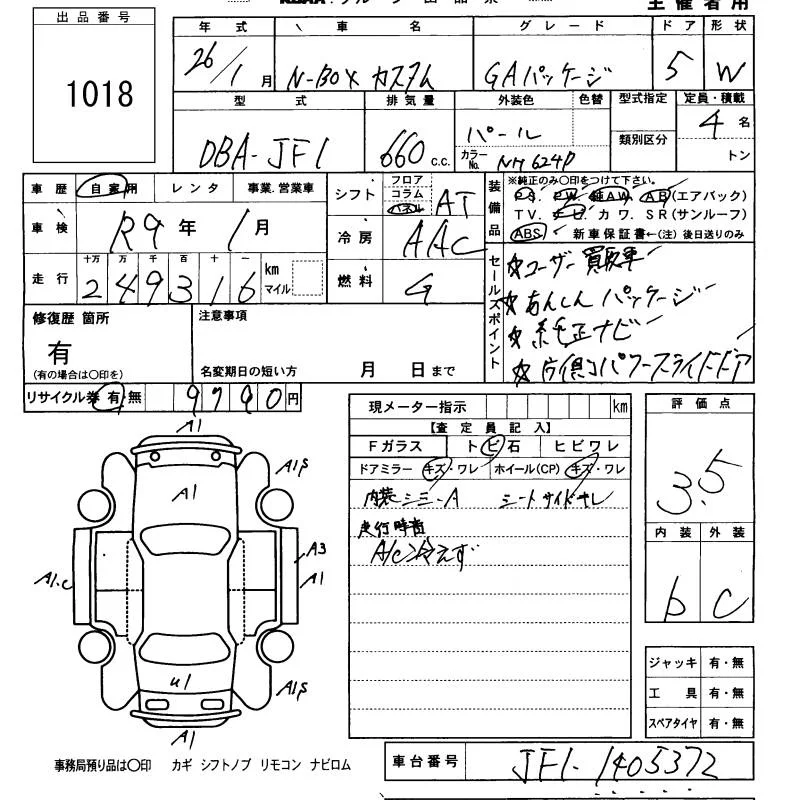 主催者用
出品番号
1018
年式 車名 グレード ドア 形状
26/1月 N-BOX カスタム GAパッケージ 5 W
型式 排気量 外装色 色替 型式指定 定員・積載
DBA-JF1 660 c.c. パール 類別区分 4名
カラーNo. NH624P トン
車歴 自家用 レンタ 事業.営業車
車検 R9年 1月
走行 十万 万 千 百 十 一
249316 km マイル
シフト フロア コラム パネル AT
冷房 AAC
燃料 G
装備品
※純正のみ〇印をつけて下さい。
P.S. P.W. 純AW. AB(エアバック)
TV. ナビ カワ. SR(サンルーフ)
ABS 新車保証書←(注)後日送りのみ
セールスポイント
☆ユーザー買取車
☆あんしんパッケージ
☆純正ナビ
☆片側パワースライドドア
修復歴 箇所
有
(有の場合は〇印を)
注意事項
名変期日の短い方 月 日まで
リサイクル券 有・無 9790円
現メーター指示 km
【査定員記入】
Fガラス トビ石 ヒビワレ
ドアミラー キズ・ワレ ホイール(CP) キズ・ワレ
内装シミ-A シートサイドサレ
走行時異
A/C冷えず
評価点
3.5
内装 外装
b C
ジャッキ 有・無
工具 有・無
スペアタイヤ 有・無
A1
A1S
A1
A3
A1
A1.C
U1
A1S
A1
事務局預り品は〇印 カギ シフトノブ リモコン ナビロム
車台番号 JF1-1405372